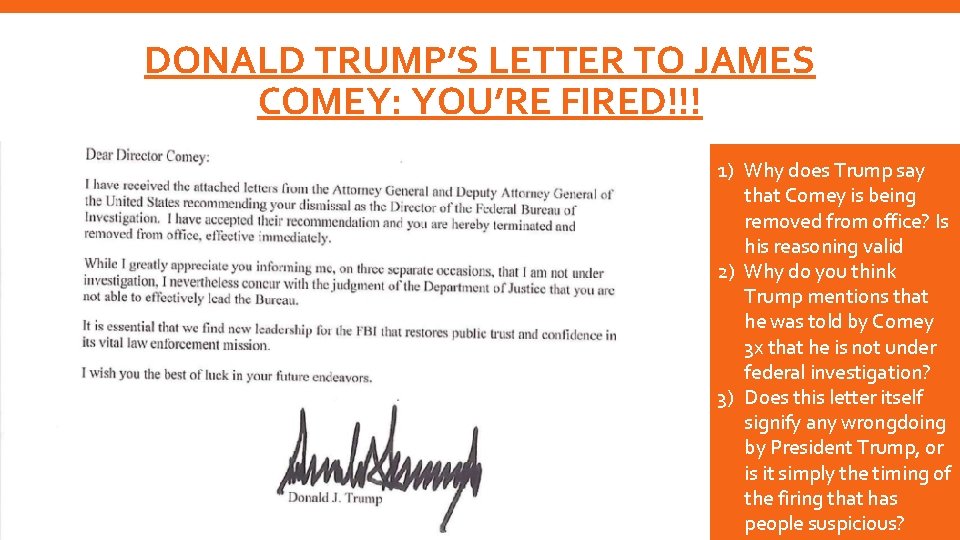 DONALD TRUMP’S LETTER TO JAMES
COMEY: YOU’RE FIRED!!!
Dear Director Comey:
I have received the attached letters from the Attorney General and Deputy Attorney General of
the United States recommending your dismissal as the Director of the Federal Bureau of
Investigation. I have accepted their recommendation and you are hereby terminated and
removed from office, effective immediately.
While I greatly appreciate you informing me, on three separate occasions, that I am not under
investigation, I nevertheless concur with the judgment of the Department of Justice that you are
not able to effectively lead the Bureau.
It is essential that we find new leadership for the FBI that restores public trust and confidence in
its vital law enforcement mission.
I wish you the best of luck in your future endeavors.
Donald J. Trump
1) Why does Trump say
that Comey is being
removed from office? Is
his reasoning valid
2) Why do you think
Trump mentions that
he was told by Comey
3x that he is not under
federal investigation?
3) Does this letter itself
signify any wrongdoing
by President Trump, or
is it simply the timing of
the firing that has
people suspicious?